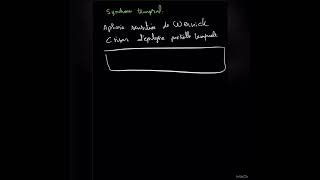 Syndrome temporal.
Aphasie sensitive de Wernick
Crises d'épilepsie partielle temporale